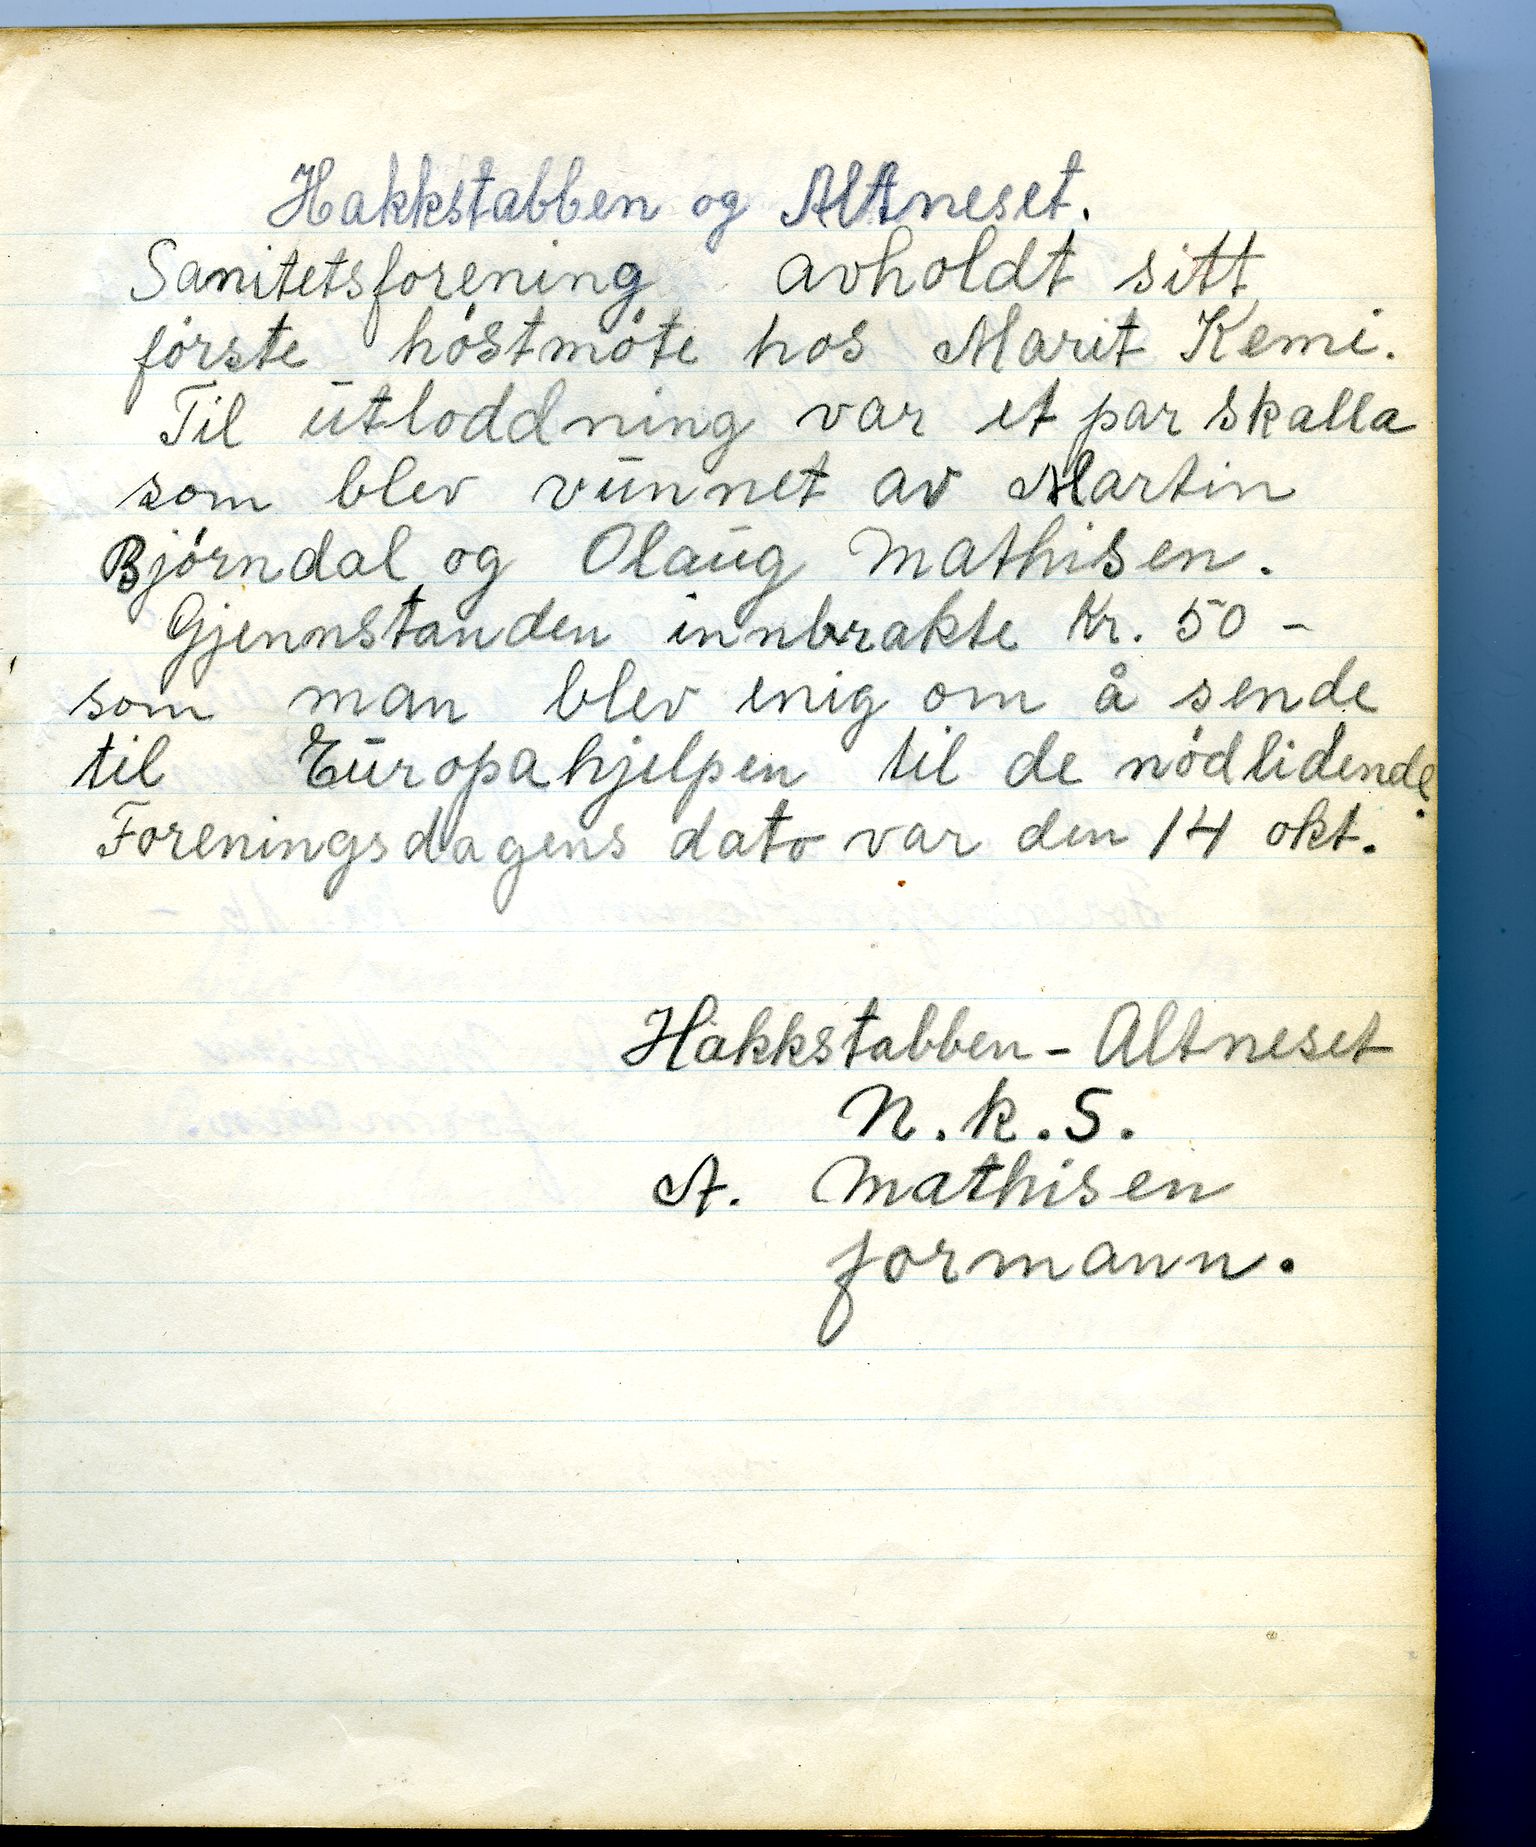 Hakkstabben og Altneset.
Sanitetsforening avholdt sitt
første høstmøte hos Marit Kemi.
Til utloddning var et par skalla
som blev vunnet av Martin
Bjørndal og Olaug Mathisen.
Gjennstanden innbrakte Kr. 50 -
som man blev enig om å sende
til Europahjelpen til de nødlidende.
Foreningsdagens dato var den 14 okt.
Hakkstabben - Altneset
N.K.S.
A. Mathisen
formann.